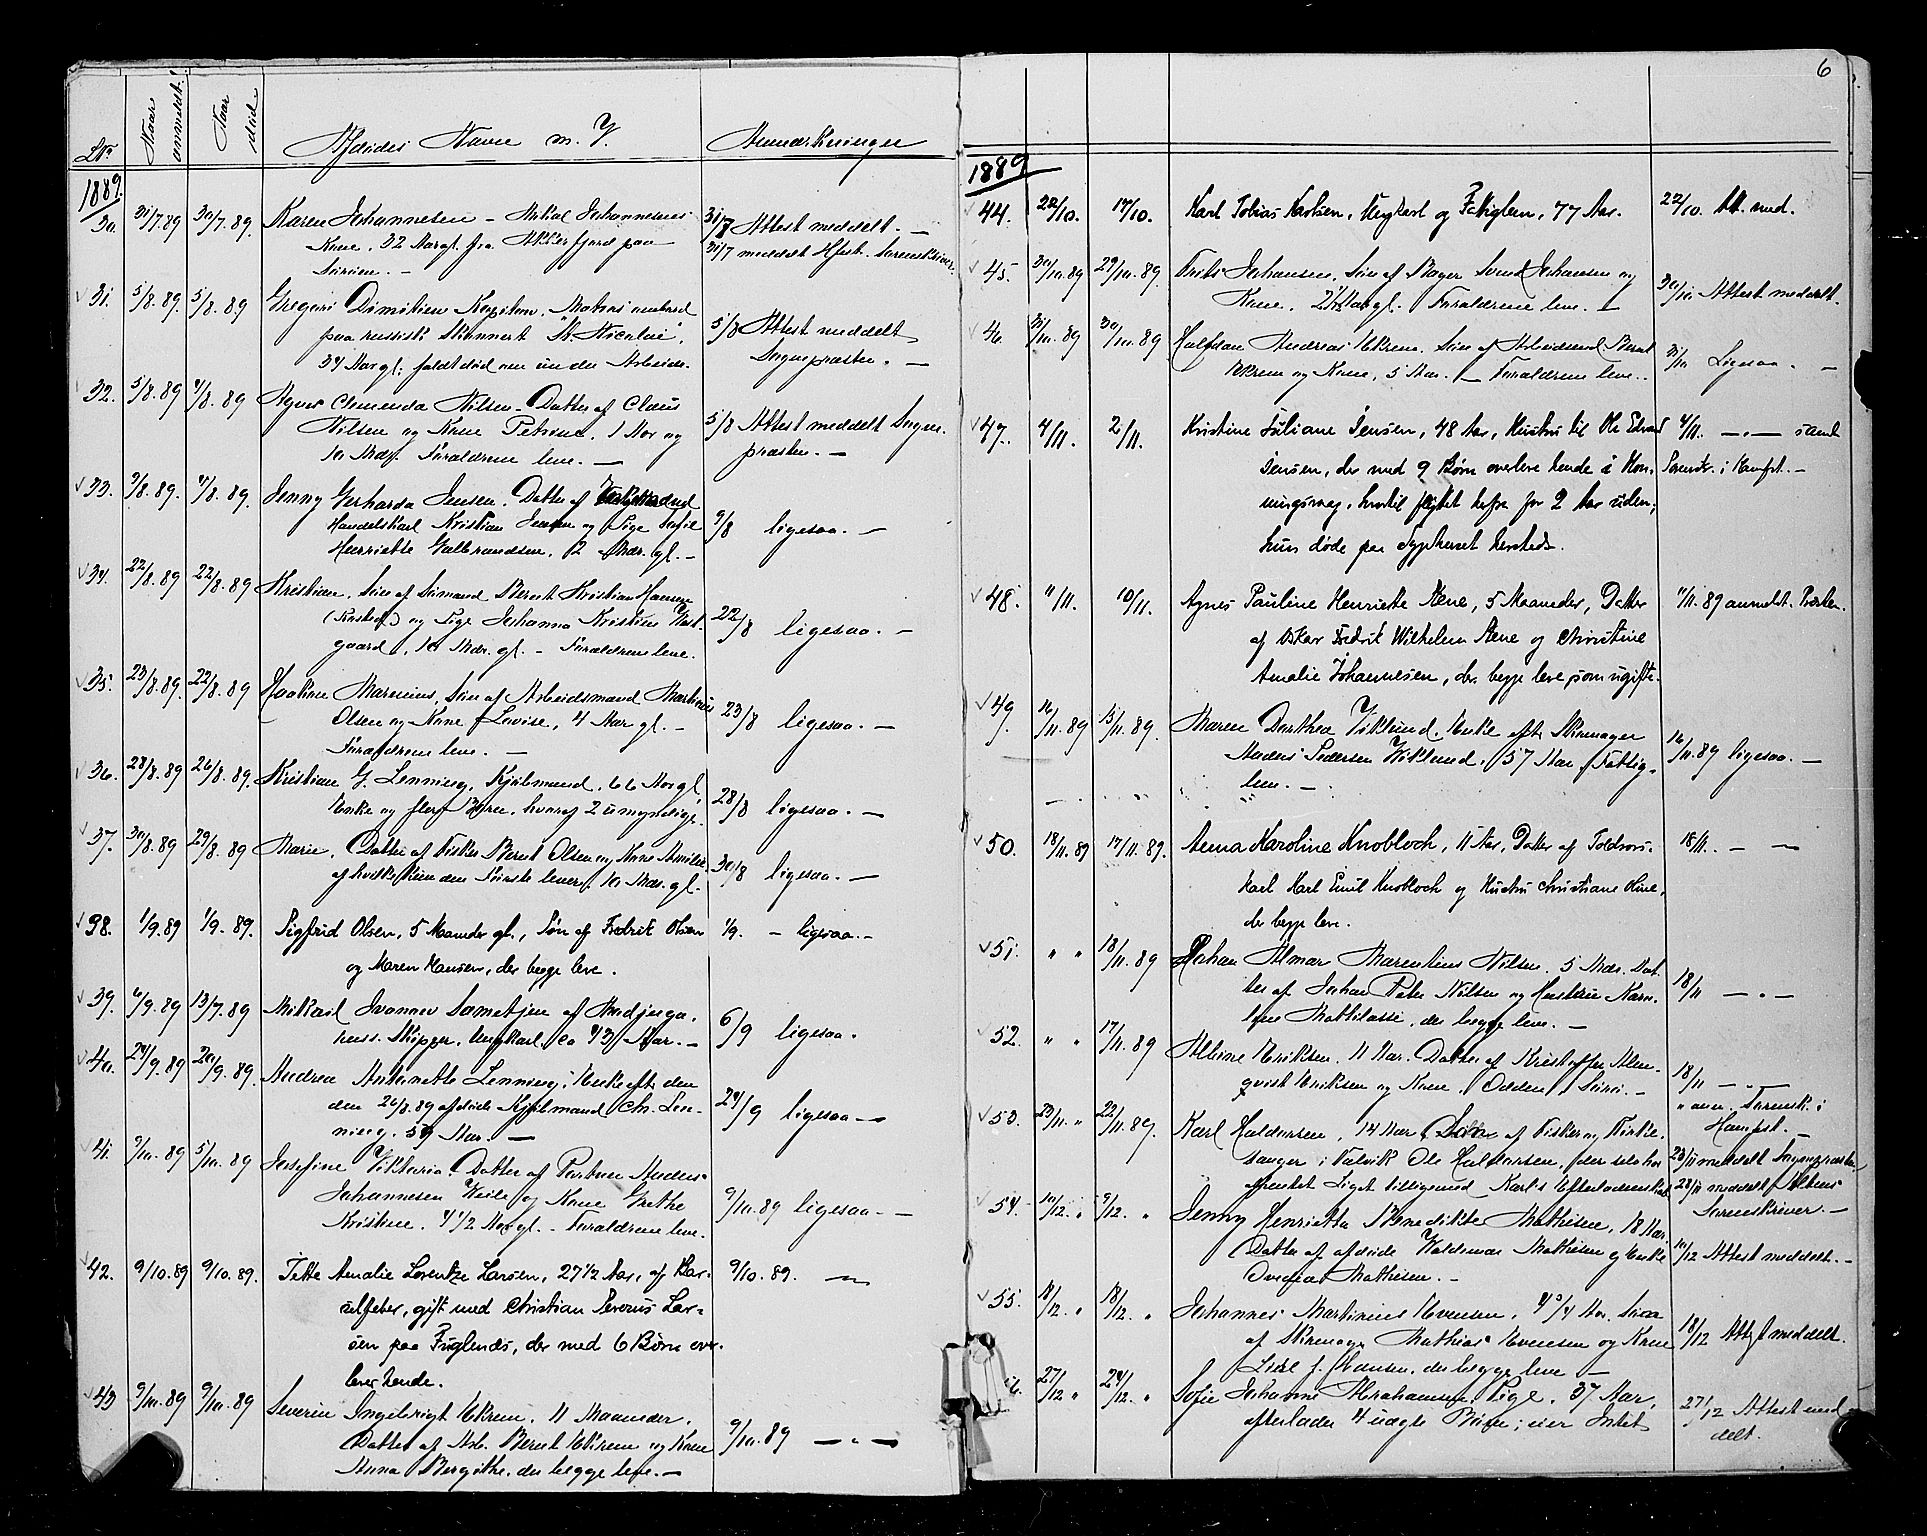 No. Naar anmeldt. Naar död. Afdödes Navn m. V. Anmærkninger
1889.
30. 31/7 89 30/7. 89. Karen Johannesen - Mikal Johannesens 31/7 Attest meddelt. -
Kone. 32 Aar gl. fra Akkerfjord paa 31/7 meddelt Hfest. Sorenskriver.
Sörøen. -
31. 5/8. 89. 5/8. 89 Gregori Dimitiew Matros ombord
paa russisk Skonnert "St. Nicolai", 5/8 Attest meddelt
34 Aar gl; faldt död om under Arbeide. Sognepræsten. -
32. 5/8. 89 4/8. 89 Agnes Clemenda Nilsen - Datter af Claus
Nilsen og Kone Petrine. 1 Aar og 5/8 Attest meddelt Sogne-
10 Mdr. Forældrene leve. - præsten. -
33. 9/8. 89. 4/8. 89. Jenny Gerharda Jensen. Datter af
Handelskarl Kristian Jensen og Pige Sofie 9/8 ligesaa. -
Henriette Gulbrandsen. 12 Mdr. gl. -
34. 22/8. 89 22/8. 89 Kristian. Søn af Sömand Bernt Kristian Hansen
og Pige Johanna Kristine West- 22/8 ligesaa. -
gaard, 10 Mdr. gl. - Forældrene leve.
35. 23/8. 89. 22/8. 89 Haakon Marenius, Søn af Arbeidsmand Martinius
Olsen og Kone Lovise, 4 Aar gl. - 23/8 ligesaa. -
Forældrene leve. -
36. 28/8. 89 26/8. 89. Kristian G. Lenning, Kjölmand, 66 Aar gl.
Enke og flere Børn, hvoraf 2 umyndige. 28/8 ligesaa. -
37. 30/8. 89 29/8. 89 Marie. Datter af Fisker Bernt Olsen og Kone Amalie
af hvilke kun den Første lever. 10 Mdr. gl. 30/8 ligesaa. -
38. 1/9. 89 1/9. 89. Sigfrid Olsen, 5 Maaneder gl., Søn af Fredrik Olsen 1/9. - ligesaa. -
og Maren Hansen, der begge leve.
39. 6/9. 89 13/7. 89 Mikael Ivanow Sametjen af
russ. Skipper. Ungkarl. ca 43 Aar. - 6/9 ligesaa.
40. 24/9. 89 20/9. 89. Andrea Antonette Lenning; Enke efter den
den 26/8. 89 afdöde Kjölmand Chr. Len- 24/9 ligesaa -
ning. 59 Aar. -
41. 9/10. 89 5/10. 89 Josefine Viktoria. Datter af
Johannesen Weile og Kone Grethe 9/10. 89 ligesaa. -
Kristine. 4 1/2 Aar gl. - Forældrene leve.
42. 9/10. 89 9/10. 89. Jette Amalie Lorentze Larsen, 27 1/2 Aar, af Bar- 9/10. 89. - " -
selfeber, gift med Christian Severus Lar=
sen paa Fuglenæs, der med 6 Börn over-
lever hende.
43 9/10. 89 9/10. 89 Severin Ingebrigt Ekrem. 11 Maaneder.
Datter af Arb. Bernt Ekrem og Kone 9/10. 89 - " -
Anna Bergithe. der begge leve. -
6
1889
44. 22/10. 17/10. Karl Tobias Karlsen, Ungkarl og Fattiglem, 77 Aar. 22/10. Att. med.
45. 30/10. 89 29/10. 89. Frits Johansen. Søn af Bager Svend Johansen og
Kone. 2 1/2 Aar gl. Forældrene leve. - 30/10. Attest meddelt.
46. 31/10. 89 30/10. 89 Halfdan Andreas Ekrem. Søn af Arbeidsmd. Bernt
Ekrem og Kone, 5 Aar. - Forældrene leve. 31/10 Ligesaa. -
47. 4/11. 2/11. Kristine Juliane Jensen, 48 Aar, Hustru til Ole Edvard 4/11. - " - samt
Jensen, der med 9 Börn overlever hende i Hon- Sorenskr. i Hamfst. -
ningsvaag, hvortil flyttet herfra for 2 Aar siden;
hun døde paa Sygehuset hersteds.
48. 11/11. 10/11. Agnes Pauline Henriette Aene, 5 Maaneder, Datter 11/11. 89 anmeldt. Præsten.
af Oskar Fredrik Wilhelm Aene og Christine
Amalie Johannesen, der begge leve som ugifte.
49. 16/11. 89 15/11. 89. Maren Dorthea Viklund. Enke efter Skomager
Anders Pedersen Wiklund. 57 Aar. Fattig- 16/11. 89 ligesaa. -
lem. -
50. 18/11. 89 17/11. 89. Anna Karoline Knobloch, 11 Aar, Datter af Toldrors- 18/11. - " -
karl Karl Emil Knobloch og Hustru Christiane Oline,
der begge leve.
51. " " 18/11. 89 Johan Almar Marentius Nilsen. 5 Mdr. Dat-
ter af Johan Peter Nilsen og Hustru Karo- 18/11 - " -
line Mathilassi, der begge leve. -
52. " " 17/11. 89 Albine Eriksen. 11 Aar. Datter af Kristoffer Alm-
qvist Eriksen og Kone, Odden i Sörö. - 18/11 - " -
53. 23/11. " 22/11. 89. Karl Haldorsen, 14 Aar, af Fisker og Kirke- " anm. Sorensk. i Hamfst. -
sanger i Talvik Ole Haldorsen, der selv har 23/11 meddelt Sognepræsten,
afhentet Liget tilligemed Karl's Efterladenskab 23/11 meddelt Altens
54. 10/12. " 9/12. " Jenny Henriette Benedikte Mathisen, 18 Aar, Sorenskriver. -
Datter af afdöde Waldemar Mathisen og Enke 10/12 Attest meddelt. -
Ovedia Mathisen. -
55. 18/12. " 18/12. " Johannes Martinius Evensen, 4 3/4 Aar. Søn
af Skomager Mathias Evensen og Kone 18/12 Attest meddelt.
Hansen, der begge leve -
56. 27/12 " 24/12. " Sofie Johanne Abrahamsen, Pige. 37 Aar,
efterlader 4 uægte Børn; eier Intet 27/12 Attest med-
delt.